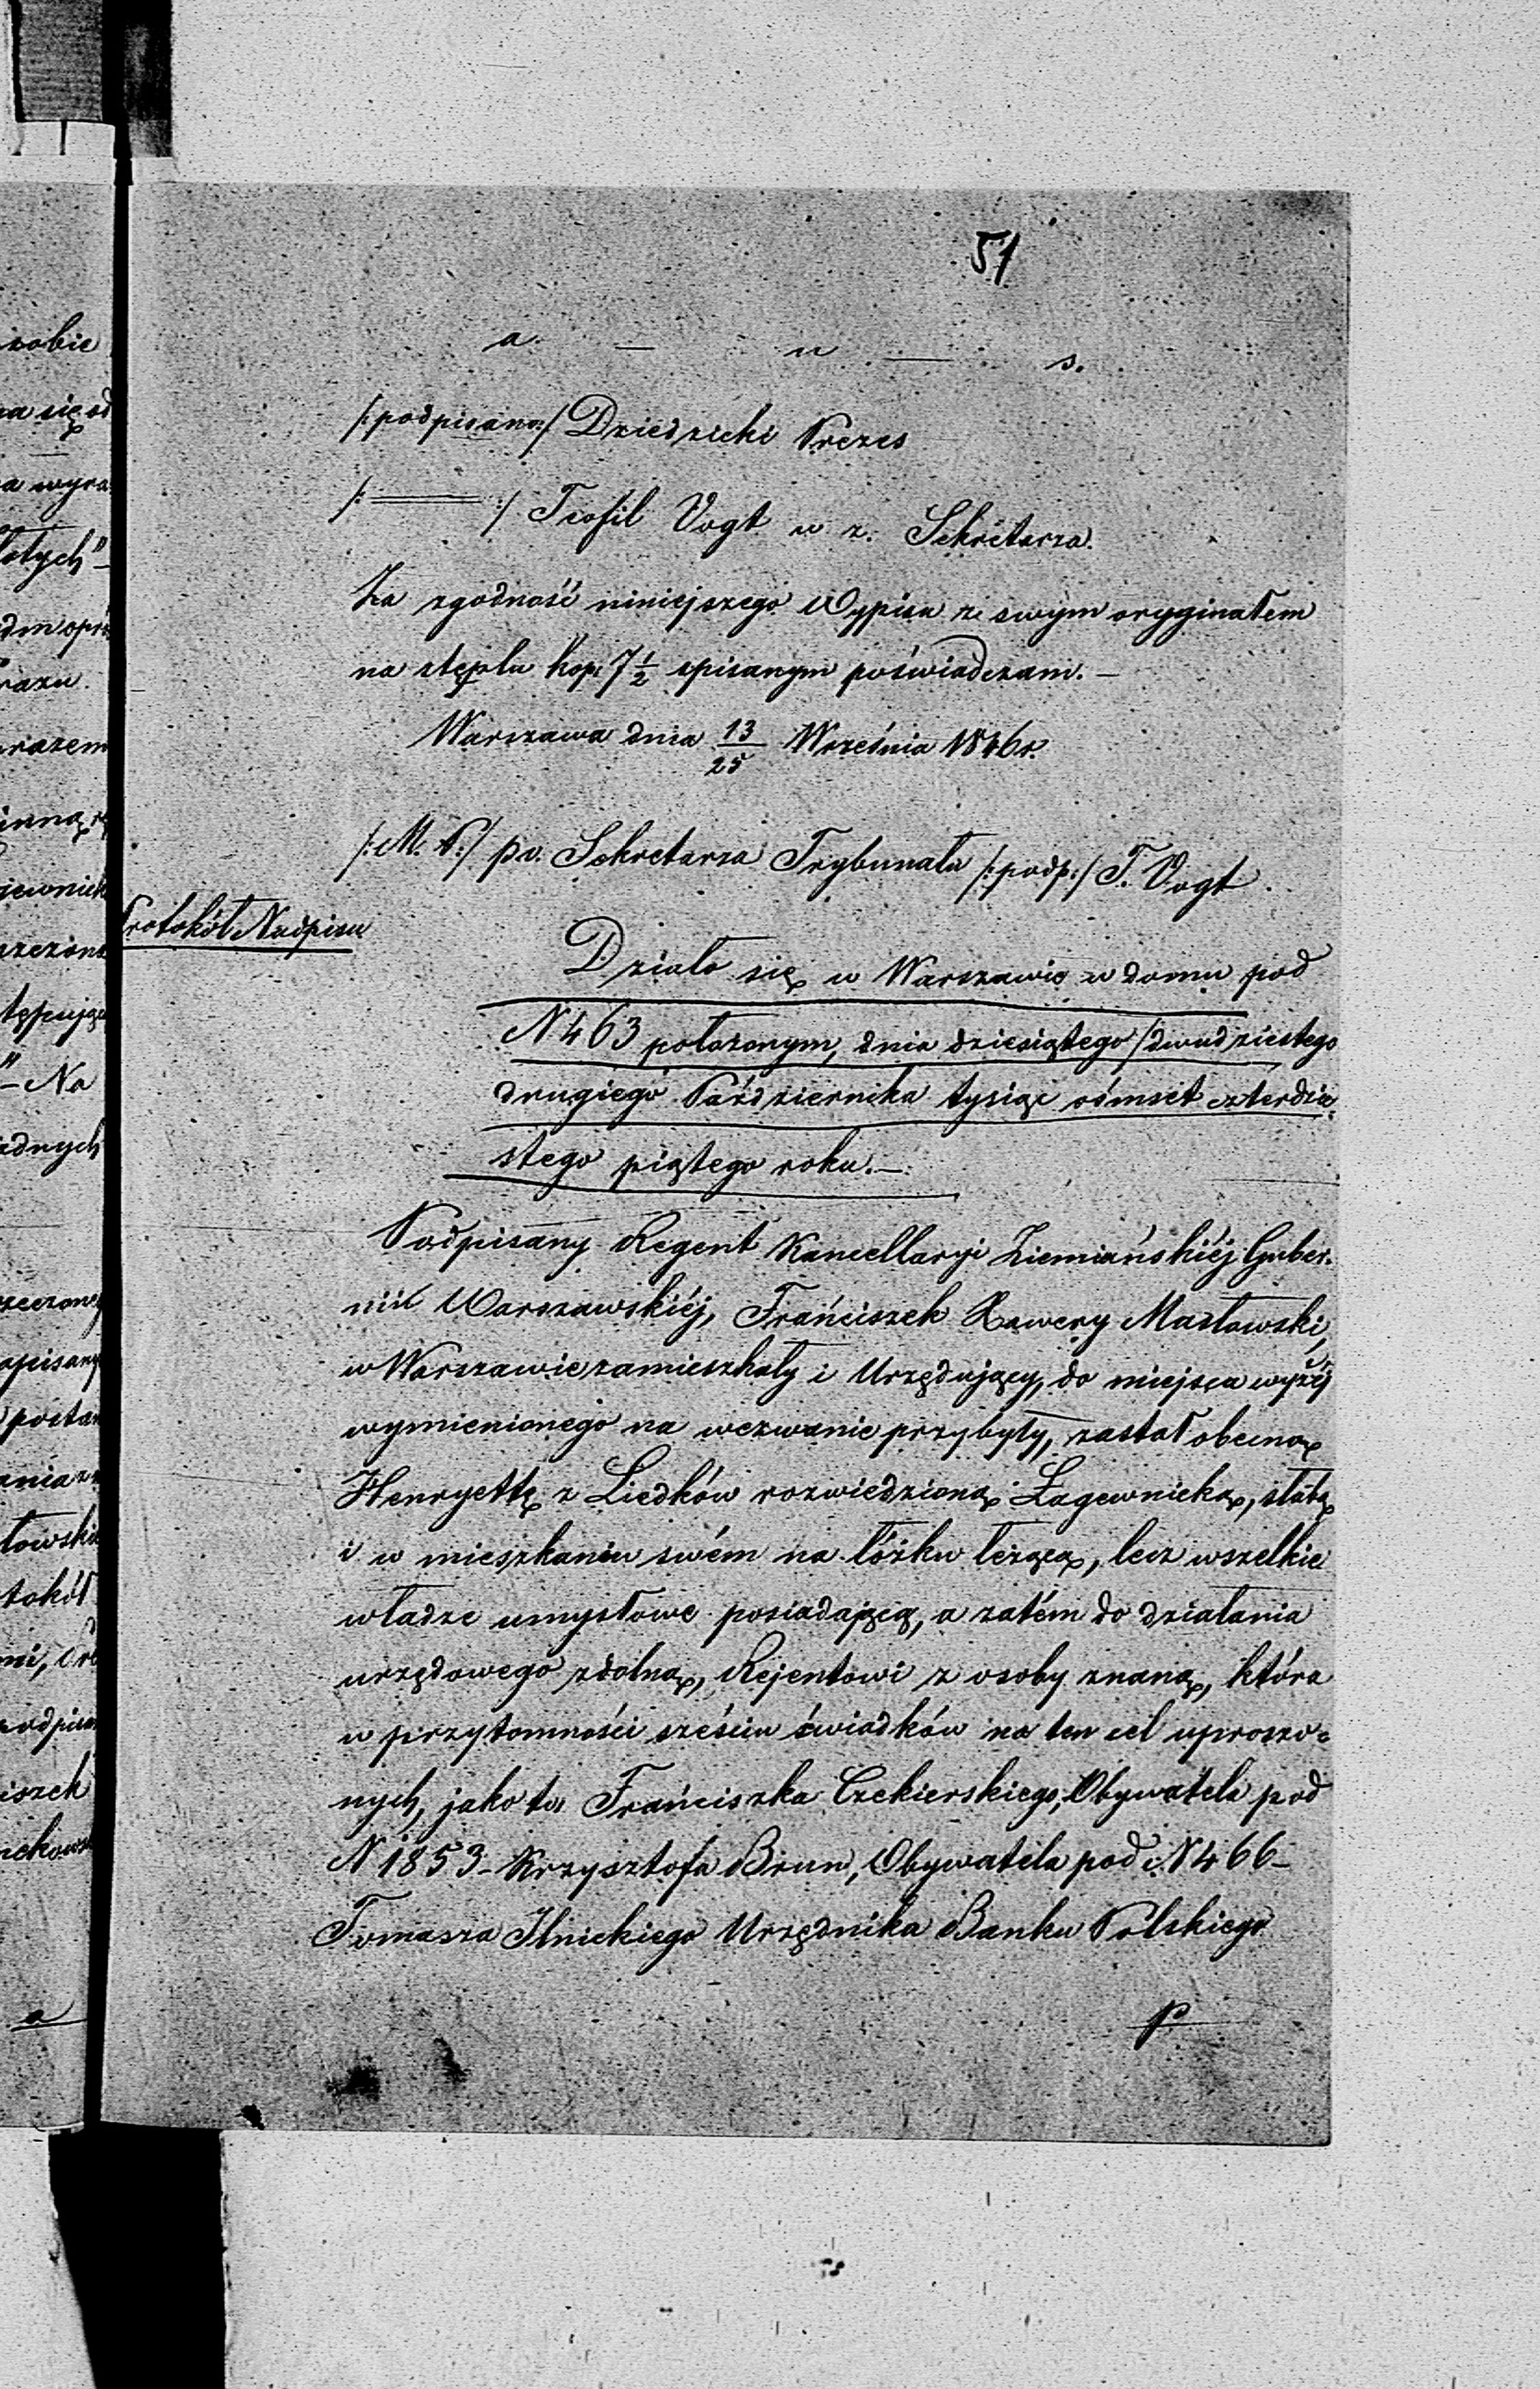 51
a. — u — s.
/:podpisano:/ Dziedzicki Prezes
/: ═══ :/ Teofil Vogt w z. Sekretarza.
Za zgodność niniejszego Wypisu ze swym oryginałem
na stęplu kop. 7 1/2 spisanym poświadczam. —
Warszawa dnia 13/25 Września 1846 r.
/:M. P:/ po. Sekretarza Trybunału /:podp:/ T. Vogt.
Protokół Nadpisu
Działo się w Warszawie w domu pod
N 463 położonym, dnia dziesiątego / dwudziestego
drugiego Października tysiąc ośmset czterdzie-
stego piątego roku. —
Podpisany Regent Kancellaryi Ziemiańskiéj Guber-
nii Warszawskiéj, Franciszek Xawery Masłowski,
w Warszawie zamieszkały i Urzędujący, do miejsca wyżéj
wymienionego na wezwanie przybyły, zastał obecną
Henryettę z Liedków rozwiedzioną Łagewnicką, słabą
i w mieszkaniu swém na łóżku leżącą, lecz wszelkie
władze umysłowe posiadającą, a zatém do działania
urzędowego zdolną, Rejentowi z osoby znaną, która
w przytomności sześciu świadków na ten cel uproszo-
nych, jako to Franciszka Czekierskiego, Obywatela pod
N 1853 – Krzysztofa Brun, Obywatela pod N 466 –
Tomasza Ilnickiego Urzędnika Banku Polskiego
p
zobie
na się od
a wyra
łotych"
razu
razem
tępując
"– Na
adnych
opisany
tokół
iszek
a